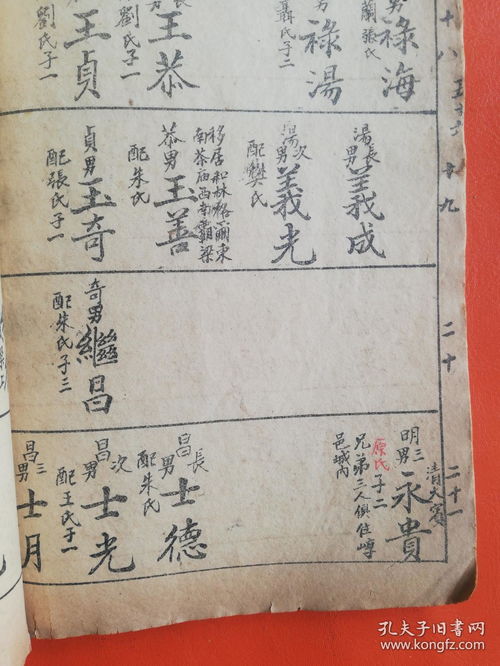 十八
男祿海
蘭張氏
男祿湯
聶氏子二
長
王恭
劉氏子一
王貞
劉氏子一
十九
湯長男義成
湯次男義光
配樊氏
恭男玉善
移居和林格爾東
南茶庙西南霸梁
配朱氏
貞男玉奇
配張氏子一
二十
奇男繼昌
配朱氏子三
二十一
清大賓
明三男永貴
原氏子二
兄弟三人俱住崞
邑城内
昌長男士德
配朱氏
昌次男士光
配王氏子一
昌三男士月
孔夫子旧书网
www.kongfz.com